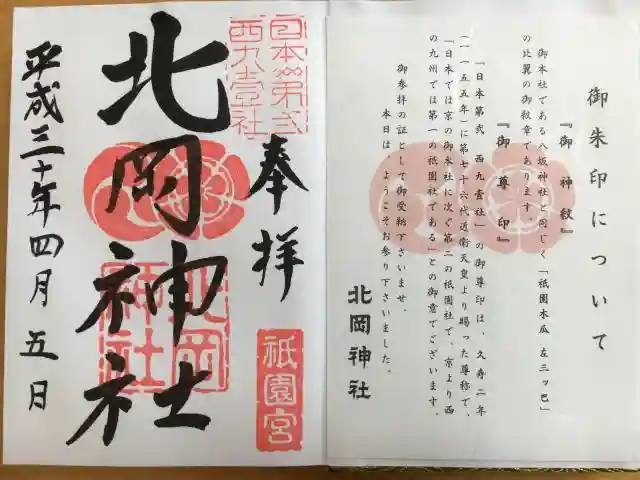 御朱印について
『御神紋』
御本社である八坂神社と同じく「祇園木瓜・左三ッ巴」
の比翼の御紋章であります。
『御尊印』
「日本第弐 西九壹社」の御尊印は、久寿二年
(一一五五年)に第七十六代近衛天皇より賜った尊称で、
「日本では京の御本社に次ぐ第二の祇園社で、京より西
の九州では第一の祇園社である」との御意でございます。
御参拝の証として御受納下さいませ。
本日は、ようこそお参り下さいました。
北岡神社
日本第弐
西九壹社
奉拝
祇園宮
北岡神社
北岡
神社
平成三十年四月五日